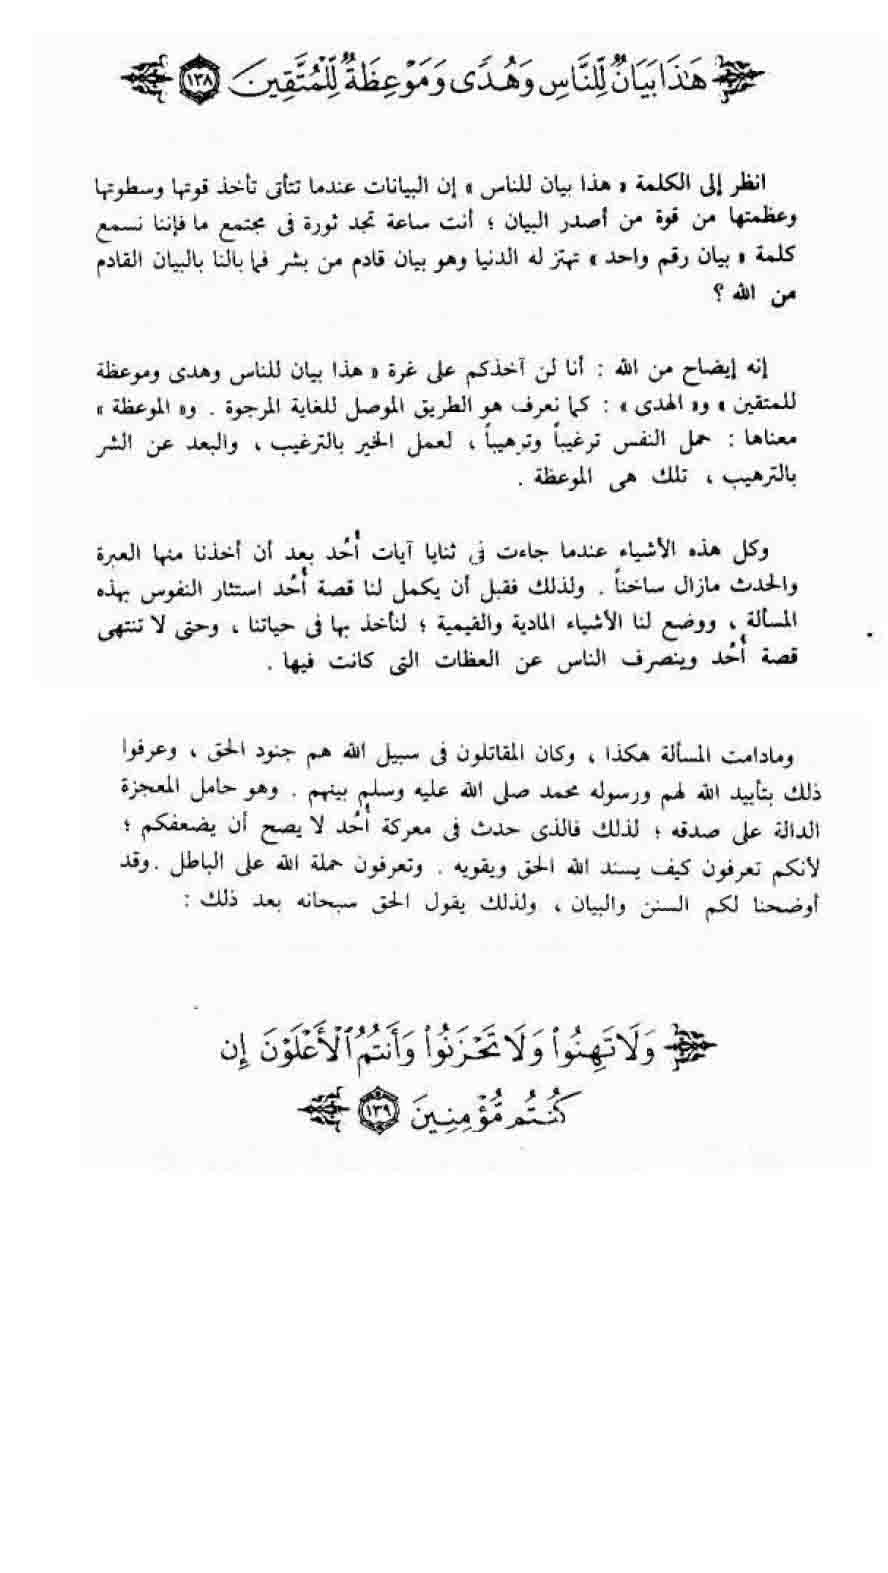 هَٰذَا بَيَانٌ لِّلنَّاسِ وَهُدًى وَمَوْعِظَةٌ لِّلْمُتَّقِينَ ١٣٨
انظر إلى الكلمة « هذا بيان للناس » إن البيانات عندما تتأتى تأخذ قوتها وسطوتها
وعظمتها من قوة من أصدر البيان ؛ أنت ساعة تجد ثورة فى مجتمع ما فإننا نسمع
كلمة « بيان رقم واحد » تهتز له الدنيا وهو بيان قادم من بشر فما بالنا بالبيان القادم
من الله ؟
إنه إيضاح من الله : أنا لن آخذكم على غرة « هذا بيان للناس وهدى وموعظة
للمتقين » و« الهدى » : كما نعرف هو الطريق الموصل للغاية المرجوة . و« الموعظة »
معناها : حمل النفس ترغيباً وترهيباً ، لعمل الخير بالترغيب ، والبعد عن الشر
بالترهيب ، تلك هى الموعظة .
وكل هذه الأشياء عندما جاءت فى ثنايا آيات أُحُد بعد أن أخذنا منها العبرة
والحدث مازال ساخناً . ولذلك فقبل أن يكمل لنا قصة أُحُد استثار النفوس بهذه
المسألة ، ووضع لنا الأشياء المادية والقيمية ؛ لنأخذ بها فى حياتنا ، وحتى لا تنتهى
قصة أُحُد وينصرف الناس عن العظات التى كانت فيها .
ومادامت المسألة هكذا ، وكان المقاتلون فى سبيل الله هم جنود الحق ، وعرفوا
ذلك بتأييد الله لهم ورسوله محمد صلى الله عليه وسلم بينهم . وهو حامل المعجزة
الدالة على صدقه ؛ لذلك فالذى حدث فى معركة أُحُد لا يصح أن يضعفكم ؛
لأنكم تعرفون كيف يسند الله الحق ويقويه . وتعرفون حملة الله على الباطل . وقد
أوضحنا لكم السنن والبيان ، ولذلك يقول الحق سبحانه بعد ذلك :
وَلَا تَهِنُوا۟ وَلَا تَحْزَنُوا۟ وَأَنتُمُ ٱلْأَعْلَوْنَ إِن
كُنتُم مُّؤْمِنِينَ ١٣٩